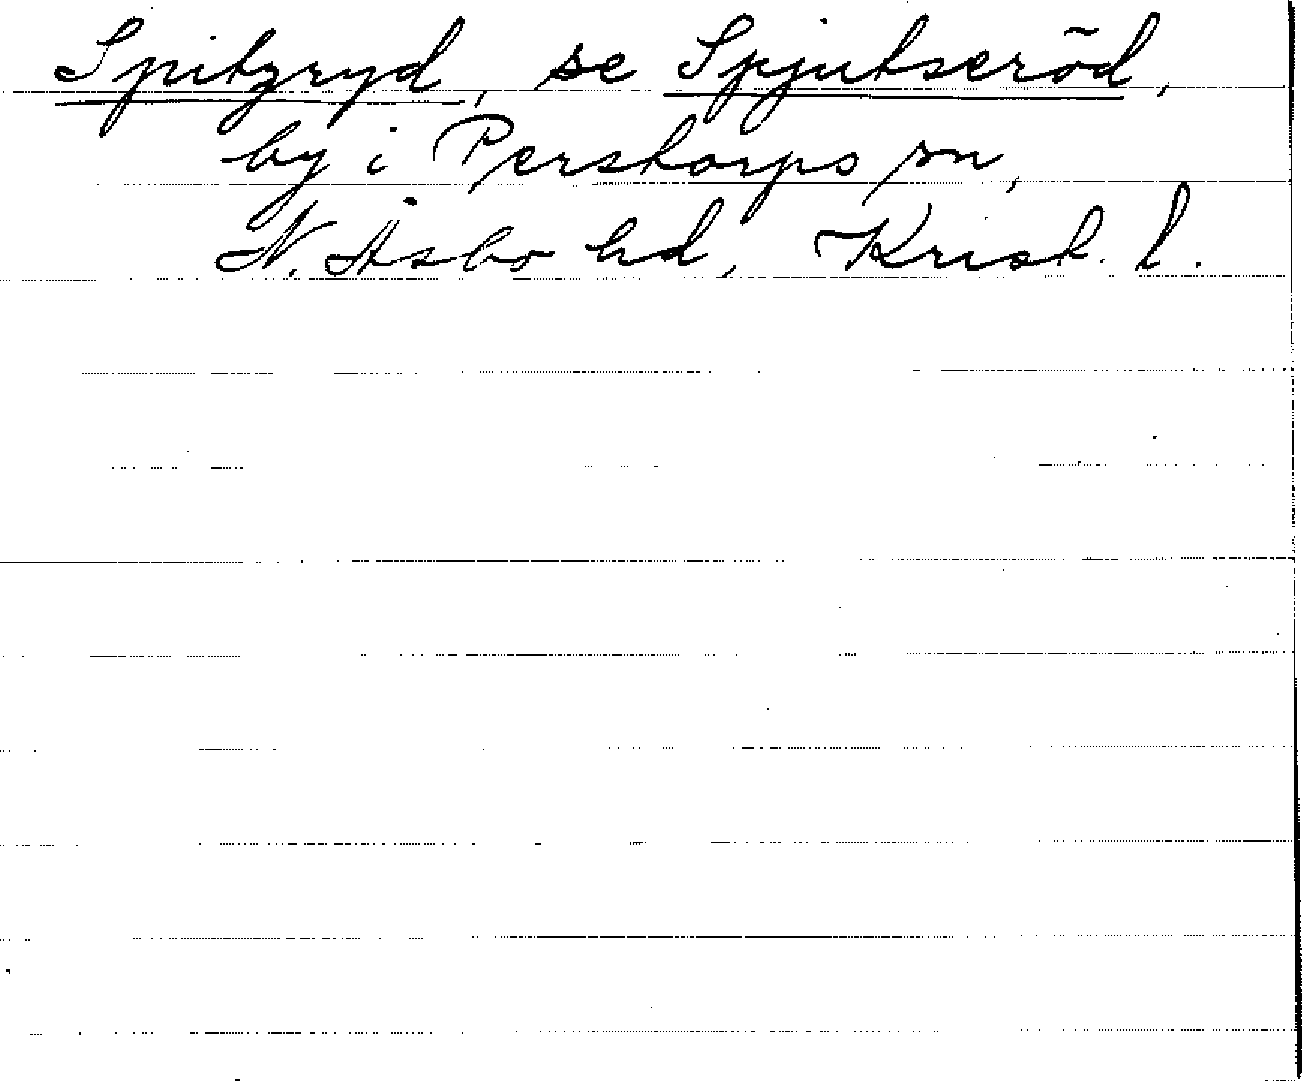 Spitzryd, se Spjutseröd,
by i Perstorps sn,
N. Åsbo hd, Krist. l.